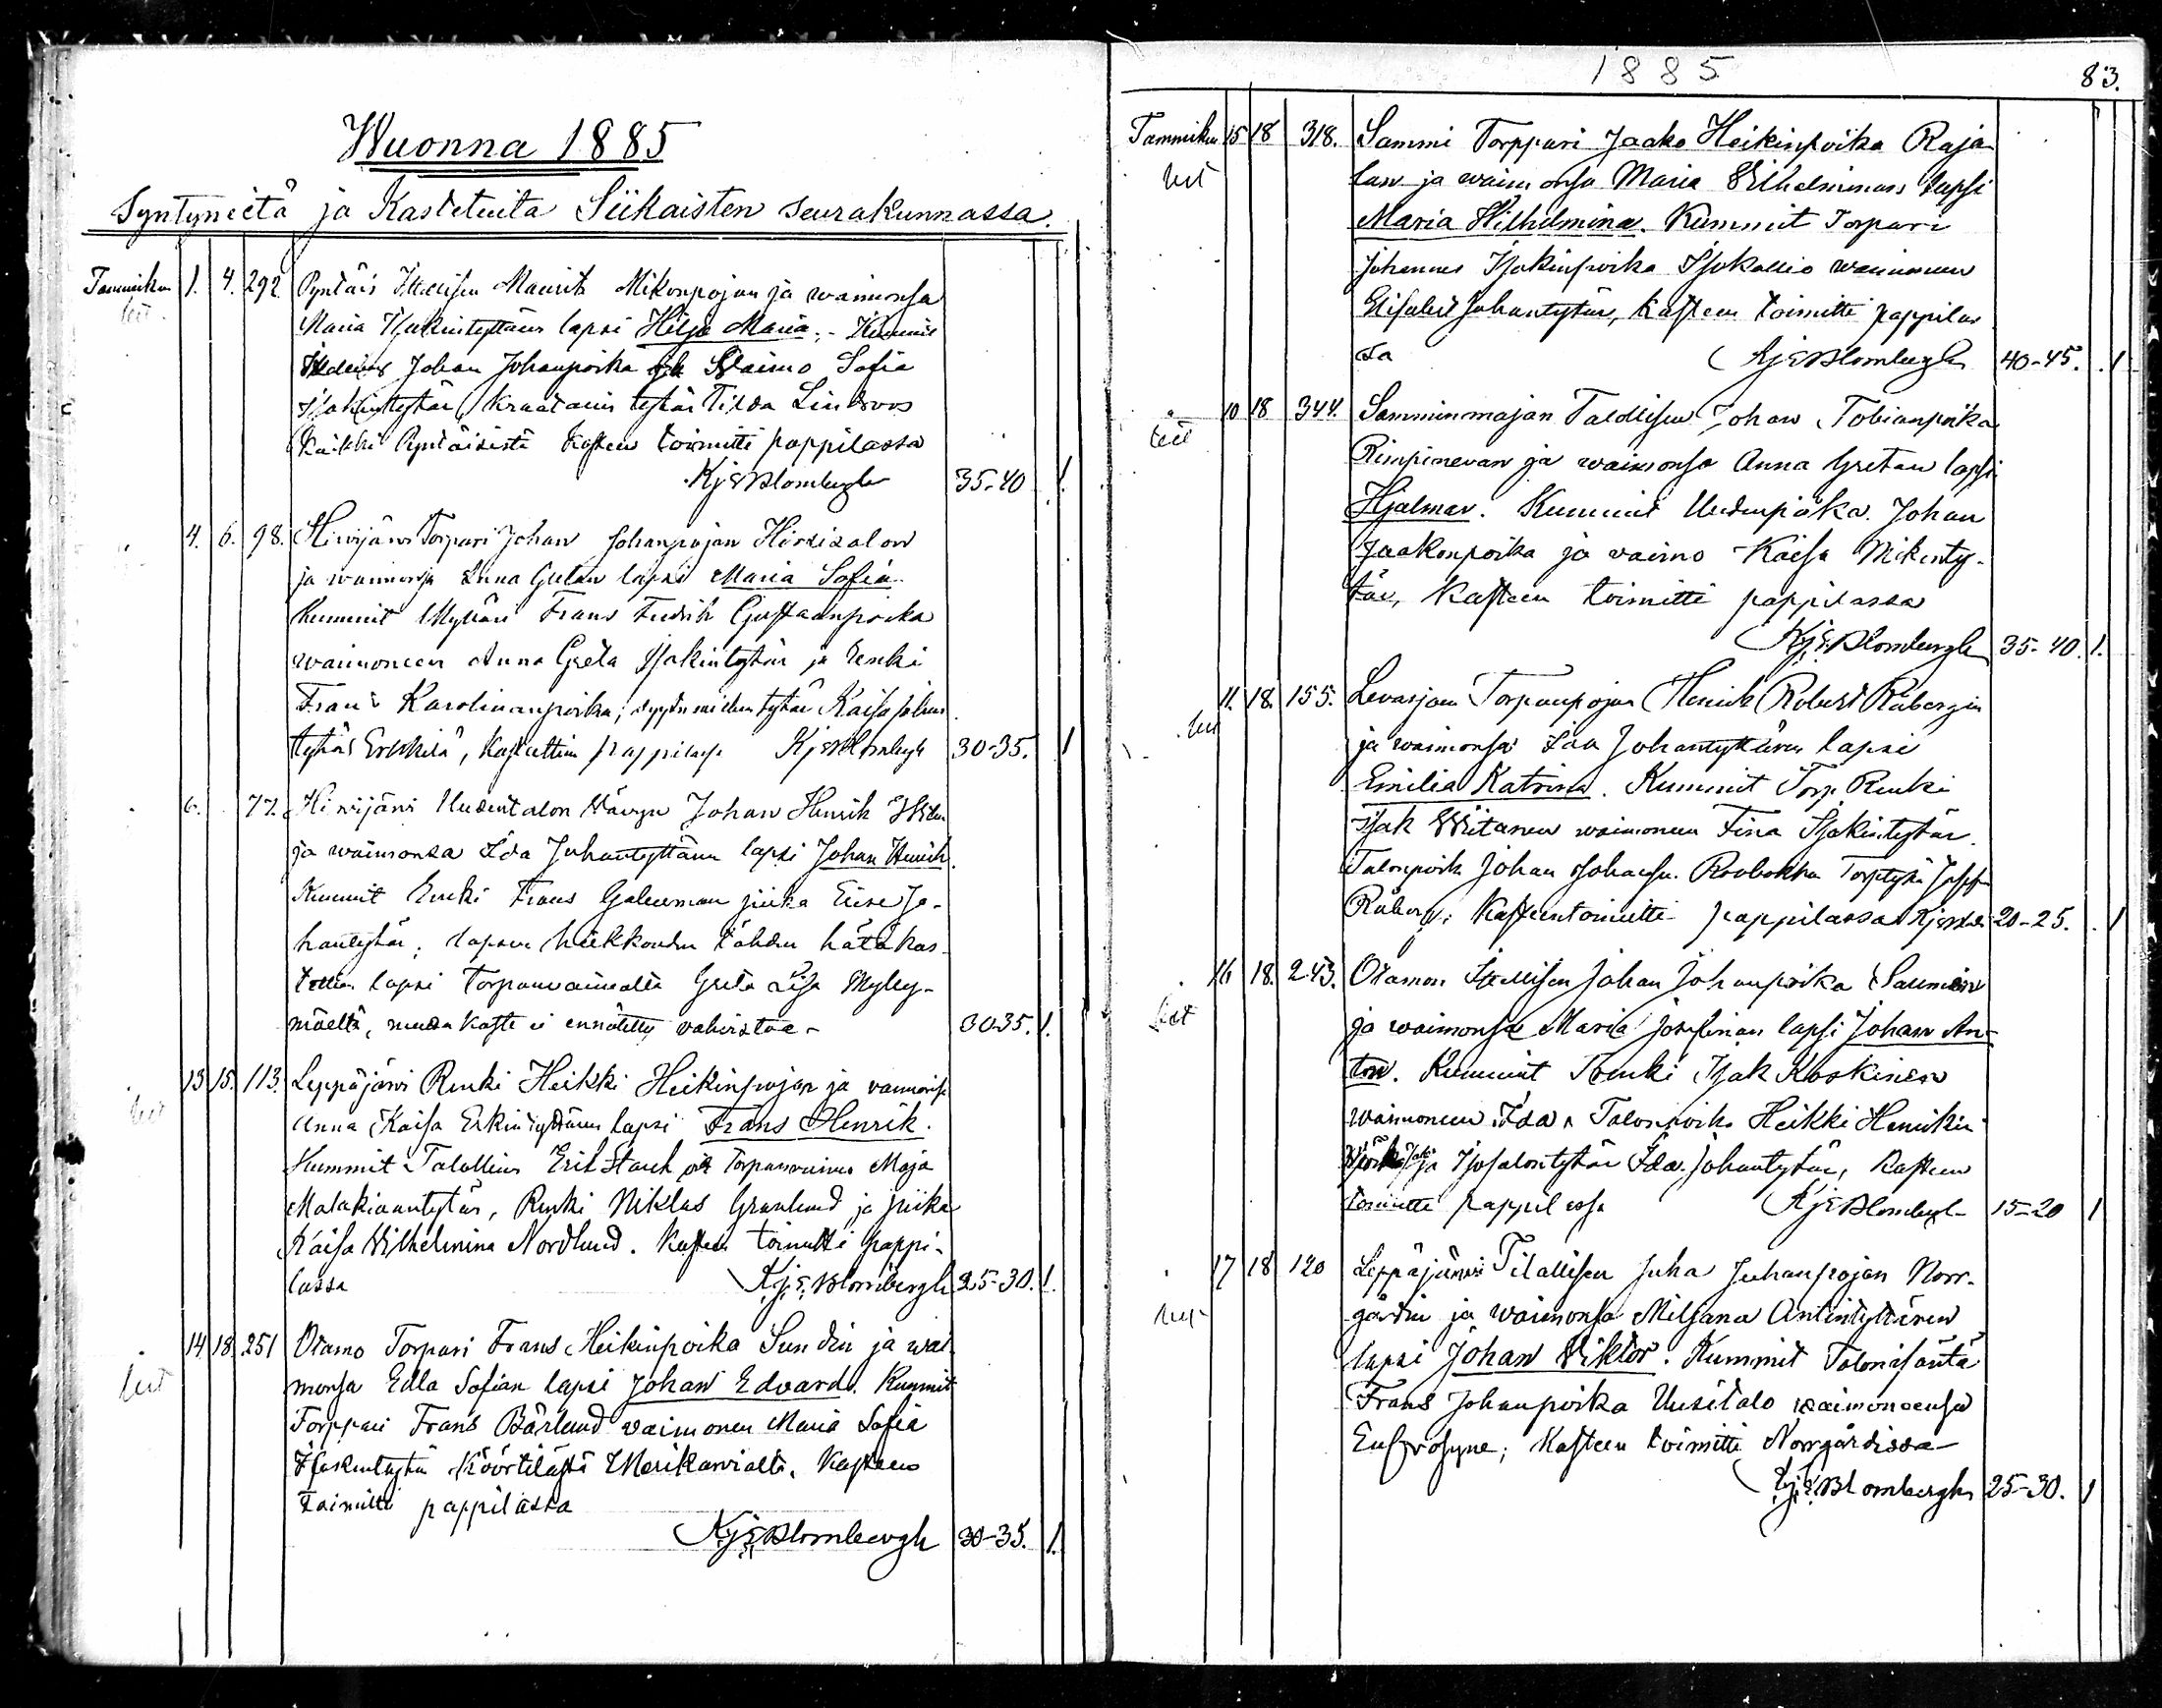 Wuonna 1885
Syntyneitä ja Kastetuita Siikaisten seurakunnassa.
Tammikuu 1. 4. 292. Pyntäis Itsellisen Maurits Mikonpojan ja waimonsa
Maria Isakintyttären lapsi Hilja Maria. - Kummit
Itsellinen Johan Johanpoika ja Waimo Sofia
Isakintytär, Kraatarin tytär Tilda Lindroos
Kaikki Pyntäisistä Kasteen toimitti pappilassa
Kj E Blombergh 35-40 1
4. 6. 98. Hirvijärvi Torpari Johan Johanpojan Hirsisalon
ja waimonsa Anna Gretan lapsi Maria Sofia.
Kummit Mylläri Frans Fredrik Gustaanpoika
waimoneen Anna Greta Isakintytär ja Renki
Frans Karolinanpoika; tytär Kaisa Johan
tytär Erkkilä, Kastettiin pappilassa Kj E Blombergh 30-35. 1
6. 77. Hirvijärvi Uudentalon Wävyn Johan Henrik
ja waimonsa Ida Juhantyttären lapsi Johan Henrik.
Kummit Renki Frans piika Jo-
hantytär; lapsen heikkouden tähden hätäkas-
lapsi Torpanvaimolta Greta Lisa Mylly-
mäeltä, mutta kaste ei ennätetty vahvistaa - 30-35. 1.
13 15. 113. Leppäjärvi Renki Heikki Heikinpojan ja vaimonsa
Anna Kaisa Erkintyttären lapsi Frans Henrik.
Kummit Talollinen Erik Starck ja Torpanvaimo Maja
Malakiaantytär, Renki Niklas Granlund ja piika
Kaisa Wilhelmina Nordlund. Kasteen toimitti pappi-
lassa Kj. E. Blombergh 25-30. 1.
14 18. 251 Otamo Torpari Frans Heikinpoika Sundin ja wai-
monsa Edla Sofian lapsi Johan Edvard. Kummit
Torppari Frans Bärlund vaimoneen Maria Sofia
Isakintytär Köörtilästä Merikarvialta. Kasteen
toimitti pappilassa
Kj E Blombergh 30-35. 1.
1885
83.
Tammikuu 15 18 318. Sammi Torppari Jaako Heikinpoika Raja-
lan ja waimonsa Maria Wilhelminan lapsi
Maria Wilhelmina. Kummit Torpari
Johannes Isakinpoika Isokallio waimoneen
Elisabet Juhantytär, Kasteen toimitti pappilas
sa Kj E Blombergh 40-45. 1
10 18 344. Samminmajan Talollisen Johan Tobianpoika
Rimpinevan ja waimonsa Anna Gretan lapsi
Hjalmar. Kummit Johan
Jaakonpoika ja vaimo Kaisa Mikinty-
tär, Kasteen toimitti pappilassa
Kj. E. Blombergh 35-40. 1.
11. 18. 155. Levasjoen Torpanpojan Henrik Robert Råbergin
ja waimonsa Ida Johantyttären lapsi
Emilia Katrina. Kummit Torp Renki
Isak Wiitanen waimoneen Fina Isakintytär.
Talonpoik Johan Johansp. Torptytär
Råberg; Kasteentoimitti pappilassa Kj E Bl 20-25. 1
16 18. 243. Otamon Itsellisen Johan Johanpoika Salmen
ja waimonsa Maria Josefinan lapsi Johan An-
ton. Kummit Renki Isak Koskinen
waimoneen Ida, Talonpoika Heikki Henrikin
ja Isotalontytär Ida Johantytär, Kasteen
toimitti pappilassa Kj E Blombergh 15-20 1
17 18 120 Leppäjärvi Tilallisen Juha Juhanpojan Norr-
gårdin ja waimonsa Miljana Antintyttären
lapsi Johan Wiktor. Kummit Talonisäntä
Frans Johanpoika Uusitalo waimoneensa
Eufrosyne; Kasteen toimitti Norrgårdissa
Kj. E. Blombergh 25-30. 1